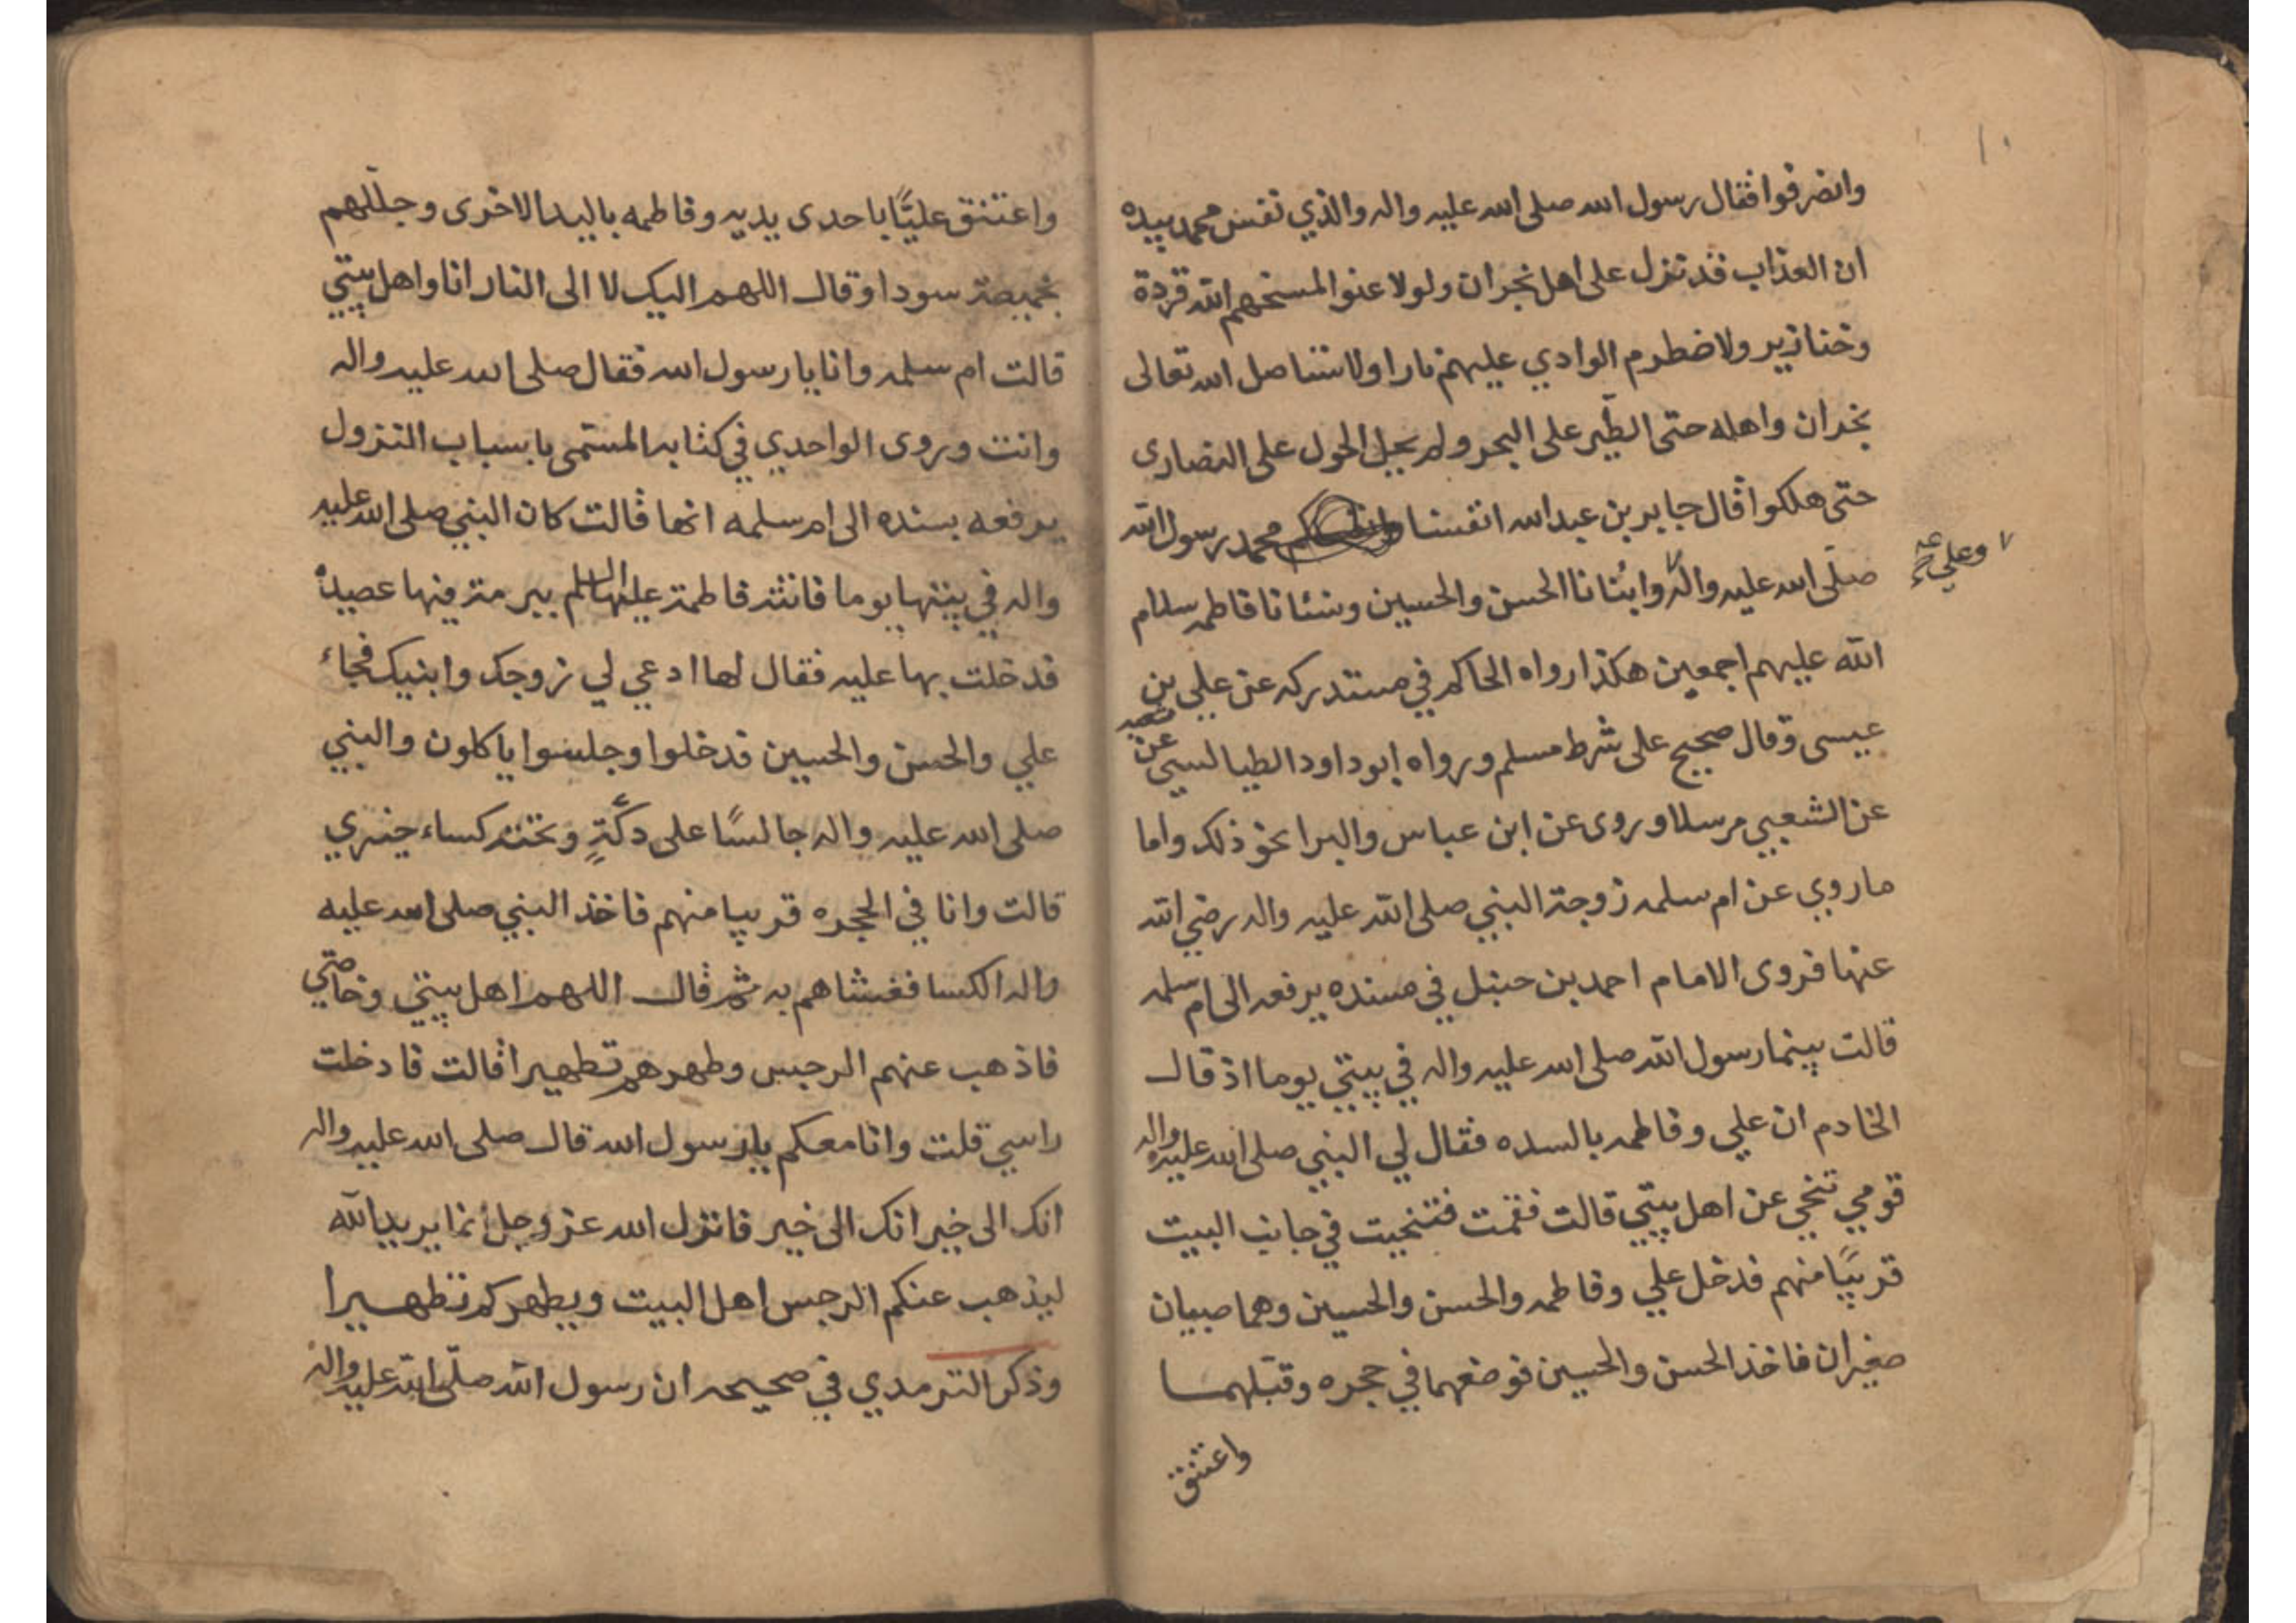 ١٠
وانصرفوا فقال رسول الله صلى الله عليه واله والذي نفس محمد بيده
ان العذاب قد نزل على اهل نجران ولولا عنوا لمسخهم الله قردة
وخنازير ولاضطرم الوادي عليهم نارا ولاستاصل الله تعالى
نجران واهله حتى الطير على البحر ولم يحل الحول على النصارى
حتى هلكوا قال جابر بن عبد الله انفسنا محمد رسول الله
وعلي ع
صلى الله عليه واله وابنانا الحسن والحسين ونسانا فاطمه سلام
الله عليهم اجمعين هكذا رواه الحاكم في مستدركه عن علي بن
عيسى وقال صحيح على شرط مسلم ورواه ابو داود الطيالسي عن
عن الشعبي مرسلا وروى عن ابن عباس والبرا نحو ذلك واما
ما روي عن ام سلمه زوجة النبي صلى الله عليه واله رضي الله
عنها فروى الامام احمد بن حنبل في مسنده يرفعه الى ام سلمه
قالت بينما رسول الله صلى الله عليه واله في بيتي يوما اذ قال
الخادم ان علي وفاطمه بالسده فقال لي النبي صلى الله عليه واله
قومي تنحي عن اهل بيتي قالت فقمت فتنحيت في جانب البيت
قريبًا منهم فدخل علي وفاطمه والحسن والحسين وهما صبيان
صغيران فاخذ الحسن والحسين فوضعهما في حجره وقبلهما
واعتنق
واعتنق عليًا باحدى يديه وفاطمه باليد الاخرى وجللهم
بخميصة سودا وقال اللهم اليك لا الى النار انا واهل بيتي
قالت ام سلمه وانا يا رسول الله فقال صلى الله عليه واله
وانت وروى الواحدي في كتابه المسمى باسباب النزول
يرفعه بسنده الى ام سلمه انها قالت كان النبي صلى الله عليه
واله في بيتها يوما فاتته فاطمة عليها السلم ببرمة فيها عصيدة
فدخلت بها عليه فقال لها ادعي لي زوجك وابنيك فجاء
علي والحسن والحسين فدخلوا وجلسوا ياكلون والنبي
صلى الله عليه واله جالسًا على دكّةٍ وتحته كساء خيبري
قالت وانا في الحجره قريبا منهم فاخذ النبي صلى الله عليه
واله الكسا فغشاهم به ثم قال اللهم اهل بيتي وخاصتي
فاذهب عنهم الرجس وطهرهم تطهيرا قالت فادخلت
راسي قلت وانا معكم يا رسول الله قال صلى الله عليه واله
انك الى خير انك الى خير فانزل الله عز وجل انما يريد الله
ليذهب عنكم الرجس اهل البيت ويطهركم تطهيرا
وذكر الترمدي في صحيحه ان رسول الله صلى الله عليه واله